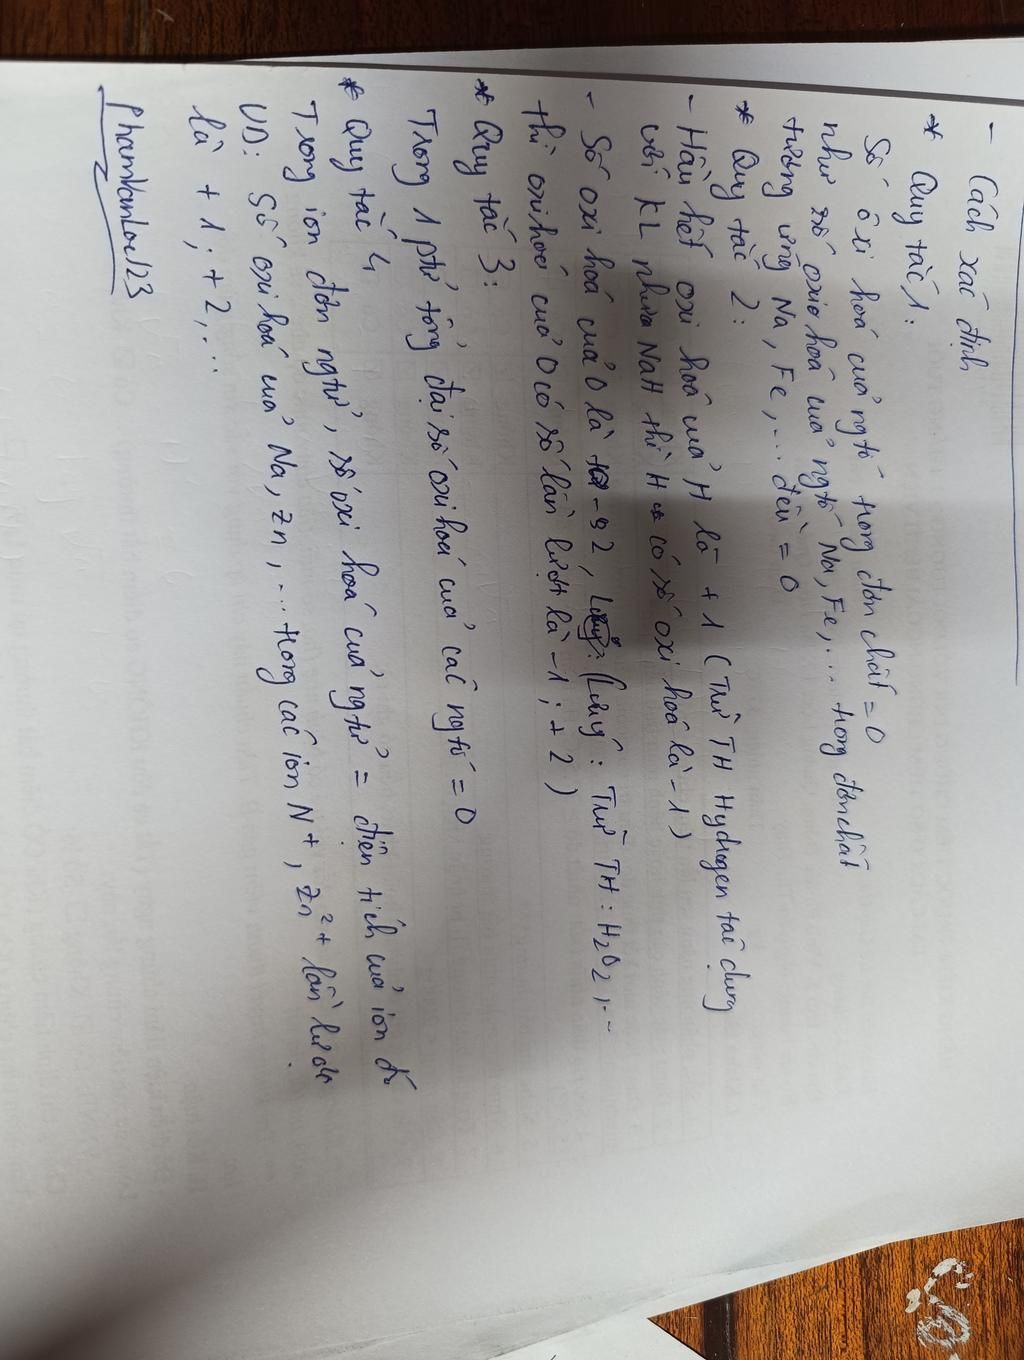 - Cách xác định
* Quy tắc 1:
Số ôxi hoá của ngtố trong đơn chất = 0
như số oxio hoá của ngtố Na, Fe,... trong đơn chất
tương ứng Na, Fe,... đều = 0
* Quy tắc 2:
- Hầu hết oxi hoá của H là +1 (Trừ TH Hydrogen tác dụng
với KL như NaH thì H có số oxi hoá là -1)
- Số oxi hoá của O là -2, (Lưu ý: Trừ TH: H₂O₂,...
thì oxi hoá của O có số lần lượt là -1; +2)
* Quy tắc 3:
Trong 1 ptử tổng đại số oxi hoá của các ngtố = 0
* Quy tắc 4
Trong ion đơn ngtử, số oxi hoá của ngtử = điện tích của ion đó
VD: Số oxi hoá của Na, Zn,... trong các ion N+, Zn²+ lần lượt
là +1; +2,...
PhamVanLoc123